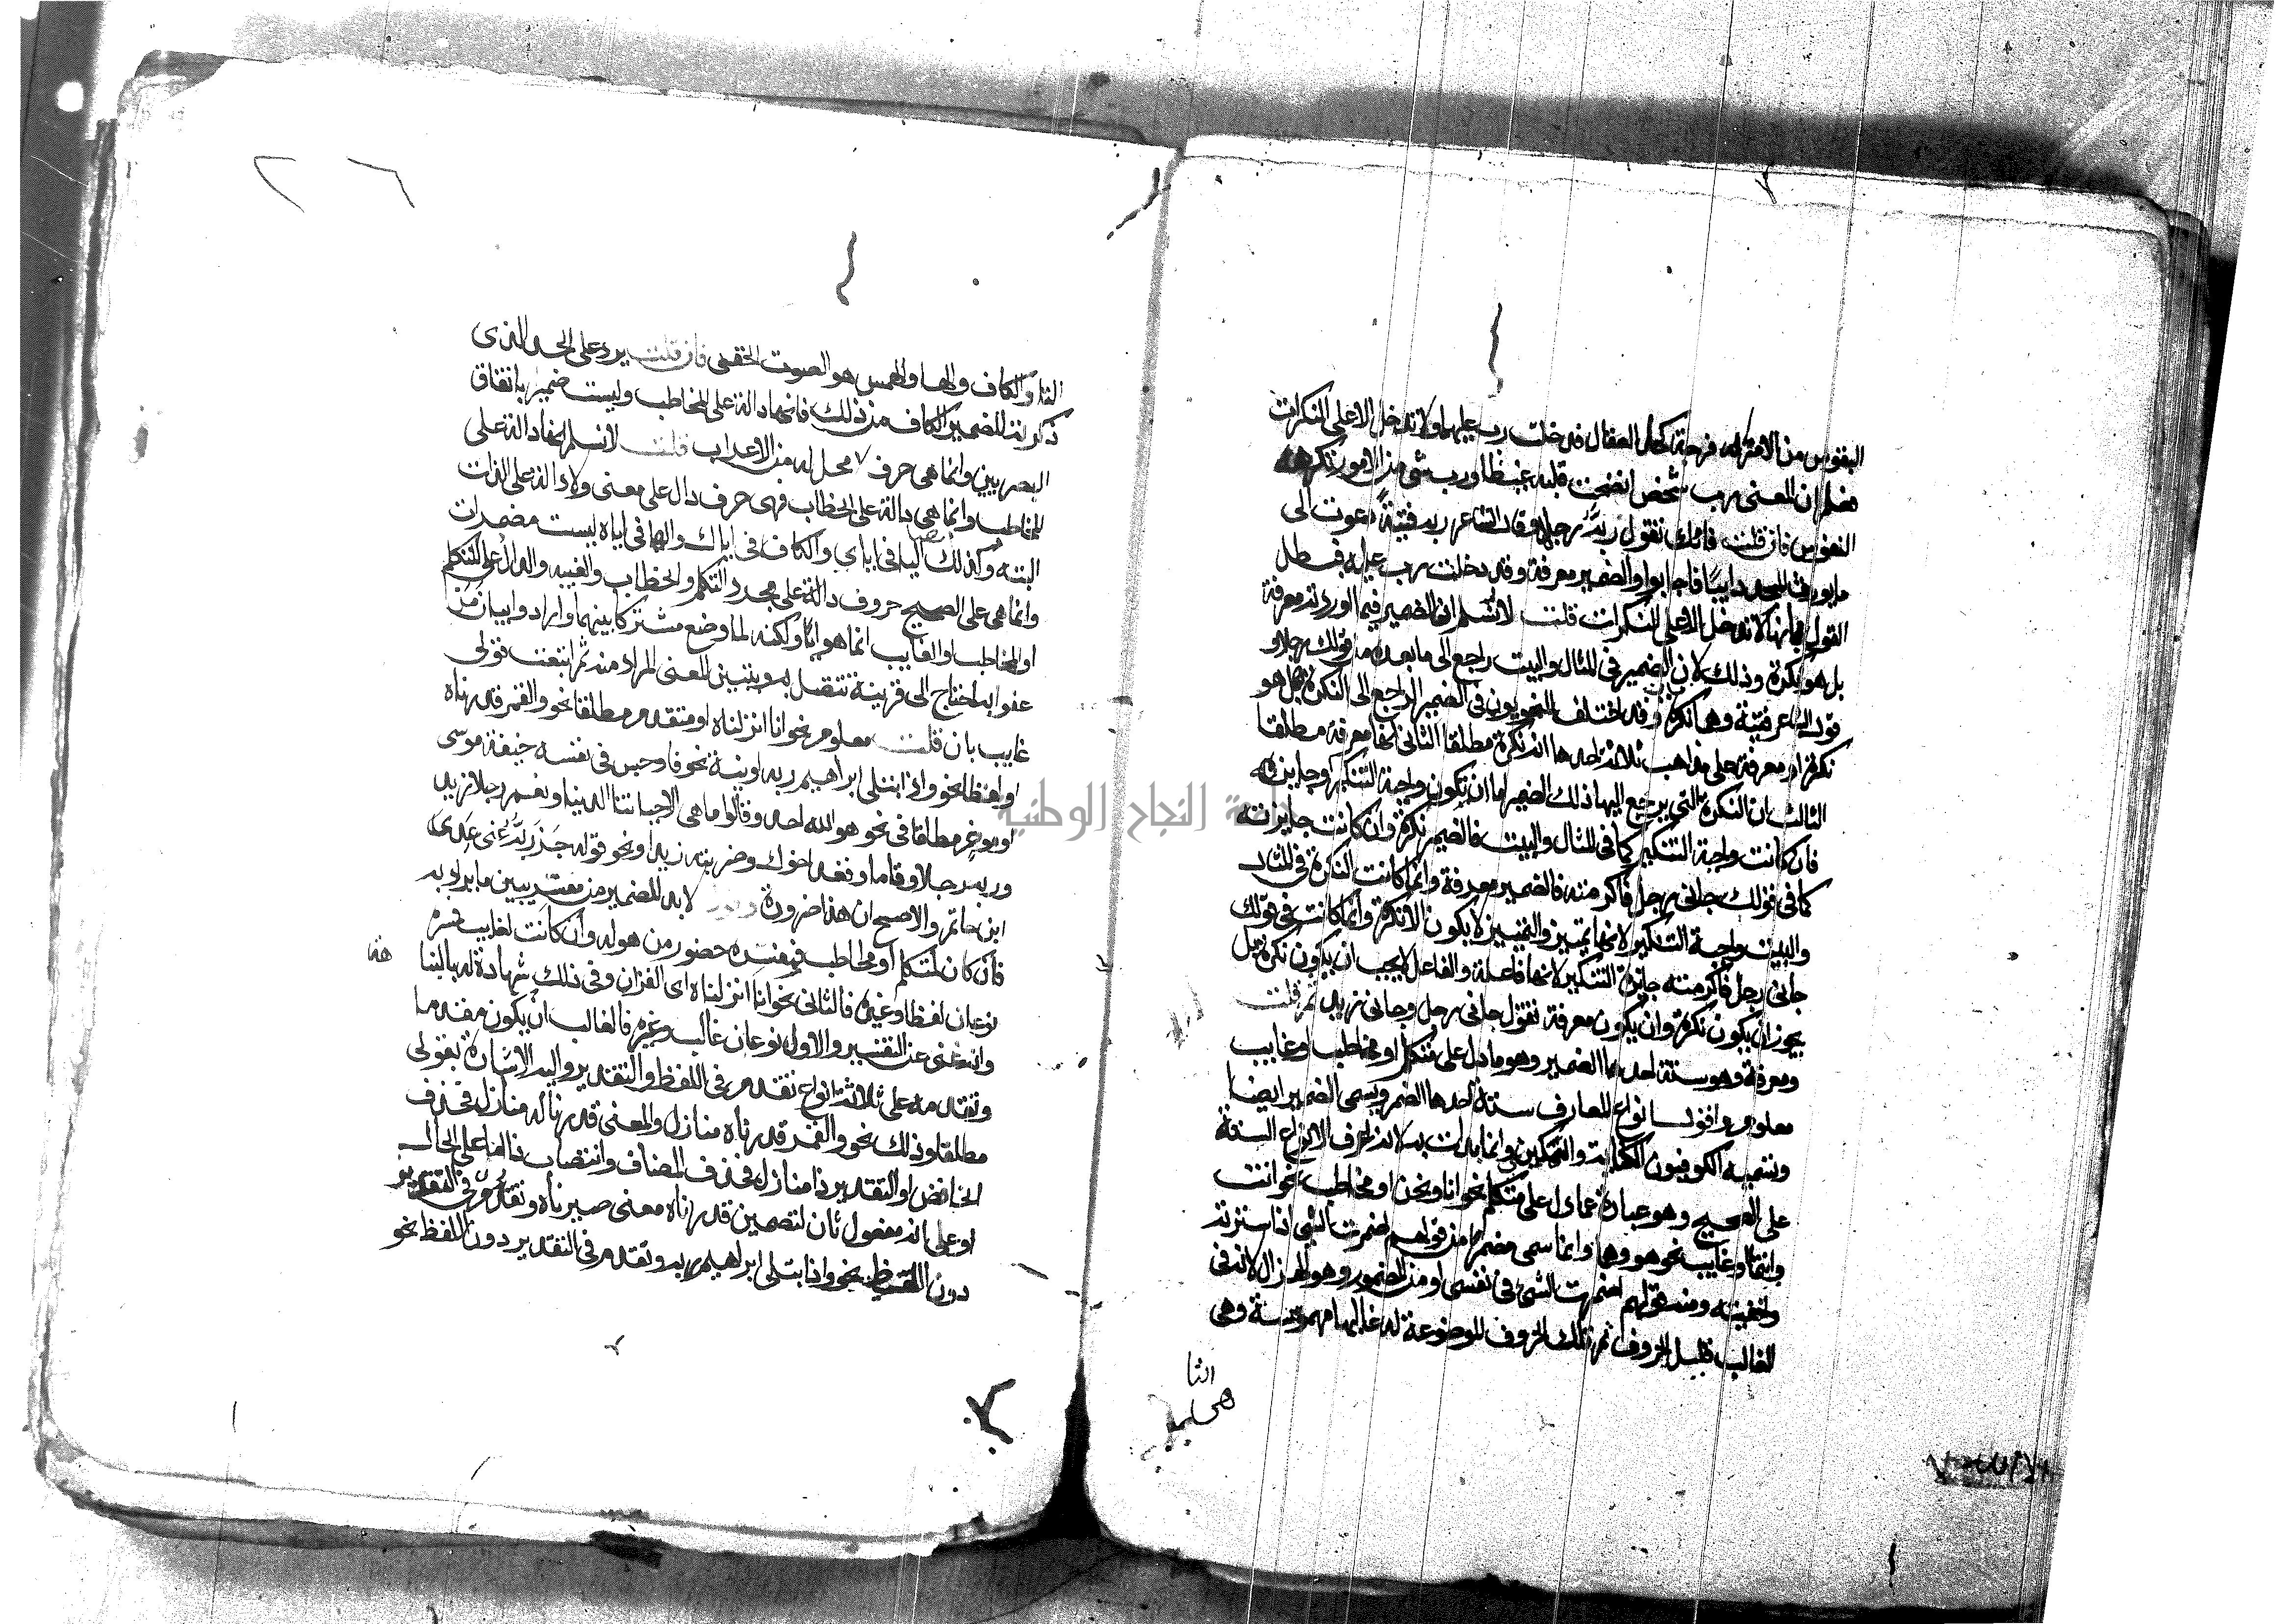 النفوس من الامر له فرجة كحل العقال فدخلت رب عليها ولا تدخل الا على النكرات
فعلم ان المعنى رب شخص انضجت قلبه غيظا ورب شي من الامور تكرهه
النفوس فان قلت فانك تقول ربه رجلا وقال الشاعر ربه فتية دعوت الى
ما يورث المجد دايبا فاجابوا والضمير معرفة وقد دخلت رب عليه فبطل
القول بانها لا تدخل الا على النكرات قلت لا نسلم ان الضمير فيما اوردته معرفة
بل هو نكرة وذلك لان الضمير في المثال والبيت راجع الى ما بعده من قولك رجلا و
قول الشاعر فتية وهما نكرة وقد اختلف النحويون في الضمير الراجع الى النكرة هل هو
نكرة او معرفة على مذاهب ثلاثة احدها انه نكرة مطلقا الثاني انها معرفة مطلقا
الثالث ان النكرة التي يرجع اليها ذلك الضمير اما ان تكون واجبة التنكير او جايزته
فان كانت واجبة التنكير كما في المثال والبيت فالضمير نكرة وان كانت جايزته
كما في قولك جاني رجل فاكرمته فالضمير معرفة وانما كانت النكرة في المثال
والبيت واجبة التنكير لانها تمييز والتمييز لا يكون الا نكرة وانما كانت في قولك
جاني رجل فاكرمته جايزة التنكير لانها فاعلة والفاعل لا يجب ان يكون نكرة بل
يجوز ان يكون نكرة وان يكون معرفة تقول جاني رجل وجاني زيد ثم قلت
ومعرفة وهو ستة احدها الضمير وهو ما دل على متكلم او مخاطب وغايب
معلوم واقول انواع المعارف ستة احدها المضمر ويسمى الضمير ايضا
وتسميه الكوفيون الكناية والمكني وانما بدات به لانه اعرف الانواع الستة
على الصحيح وهو عبارة عما دل على متكلم نحو انا ونحن او مخاطب نحو انت
وانتما او غايب نحو هو وهما وانما سمي مضمرا من قولهم اضمرت الشي اذا سترته
واخفيته ومنه قولهم اضمرت الشي في نفسي او من الضمور وهو الهزال لانه في
الغالب قليل الحروف ثم تلك الحروف الموضوعة له غالبها مهموسة وهي
التا
التا والكاف والها والهمس هو الصوت الخفي فان قلت يرد على الحد الذي
ذكرته للضمير الكاف من ذلك فانها دالة على المخاطب وليست ضميرا باتفاق
البصريين وانما هي حرف لا محل له من الاعراب قلت لا نسلم انها دالة على
المخاطب وانما هي دالة على الخطاب فهي حرف دال على معنى ولا دالة على الذات
البتة وكذلك اليا في اياي والكاف في اياك والها في اياه ليست مضمرات
وانما هي على الصحيح حروف دالة على مجرد التكلم والخطاب والغيبة والدال على المتكلم
او المخاطب والغايب انما هو ايا ولكنه لما وضع مشتركا بينهما وارادوا بيان من
عنوا به احتاج الى قرينة تتصل به وتبين المعنى المراد منه ثم اتبعت قولي
غايب بان قلت معلوم نحو انا انزلناه او متقدم مطلقا نحو والقمر قدرناه
او لفظا نحو واذ ابتلى ابراهيم ربه او نية نحو فاوجس في نفسه خيفة موسى
او موخر مطلقا في نحو هو الله احد وقالوا ما هي الا حياتنا الدنيا ونعم رجلا زيد
وربه رجلا وقاما وقعد اخوك وضربته زيدا ونحو قوله جزى ربه عني عدي
ابن حاتم والاصح ان هذا ضرورة واقول لابد للضمير من مفسر يبين ما يراد به
فان كان لمتكلم او مخاطب فمفسره حضور من هو له وان كانت لغايب فمفسره
نوعان لفظ او غيره فالثاني نحو انا انزلناه اي القران وفي ذلك شهادة له بالنباهة
وانه غني عن التفسير والاول نوعان غالب وغيره فالغالب ان يكون مقدما
وتقدمه على ثلاثة انواع تقدم في اللفظ والتقدير واليه الاشارة بقولي
مطلقا وذلك نحو والقمر قدرناه منازل والمعنى قدرنا له منازل فحذف
الخافض او التقدير ذا منازل فحذف المضاف وانتصاب ذا اما على الحال
او على انه مفعول ثان لتضمين قدرناه معنى صيرناه وتقدم في التقدير
دون اللفظ نحو واذ ابتلى ابراهيم ربه وتقدم في التقدير دون اللفظ نحو
جامعة النجاح الوطنية